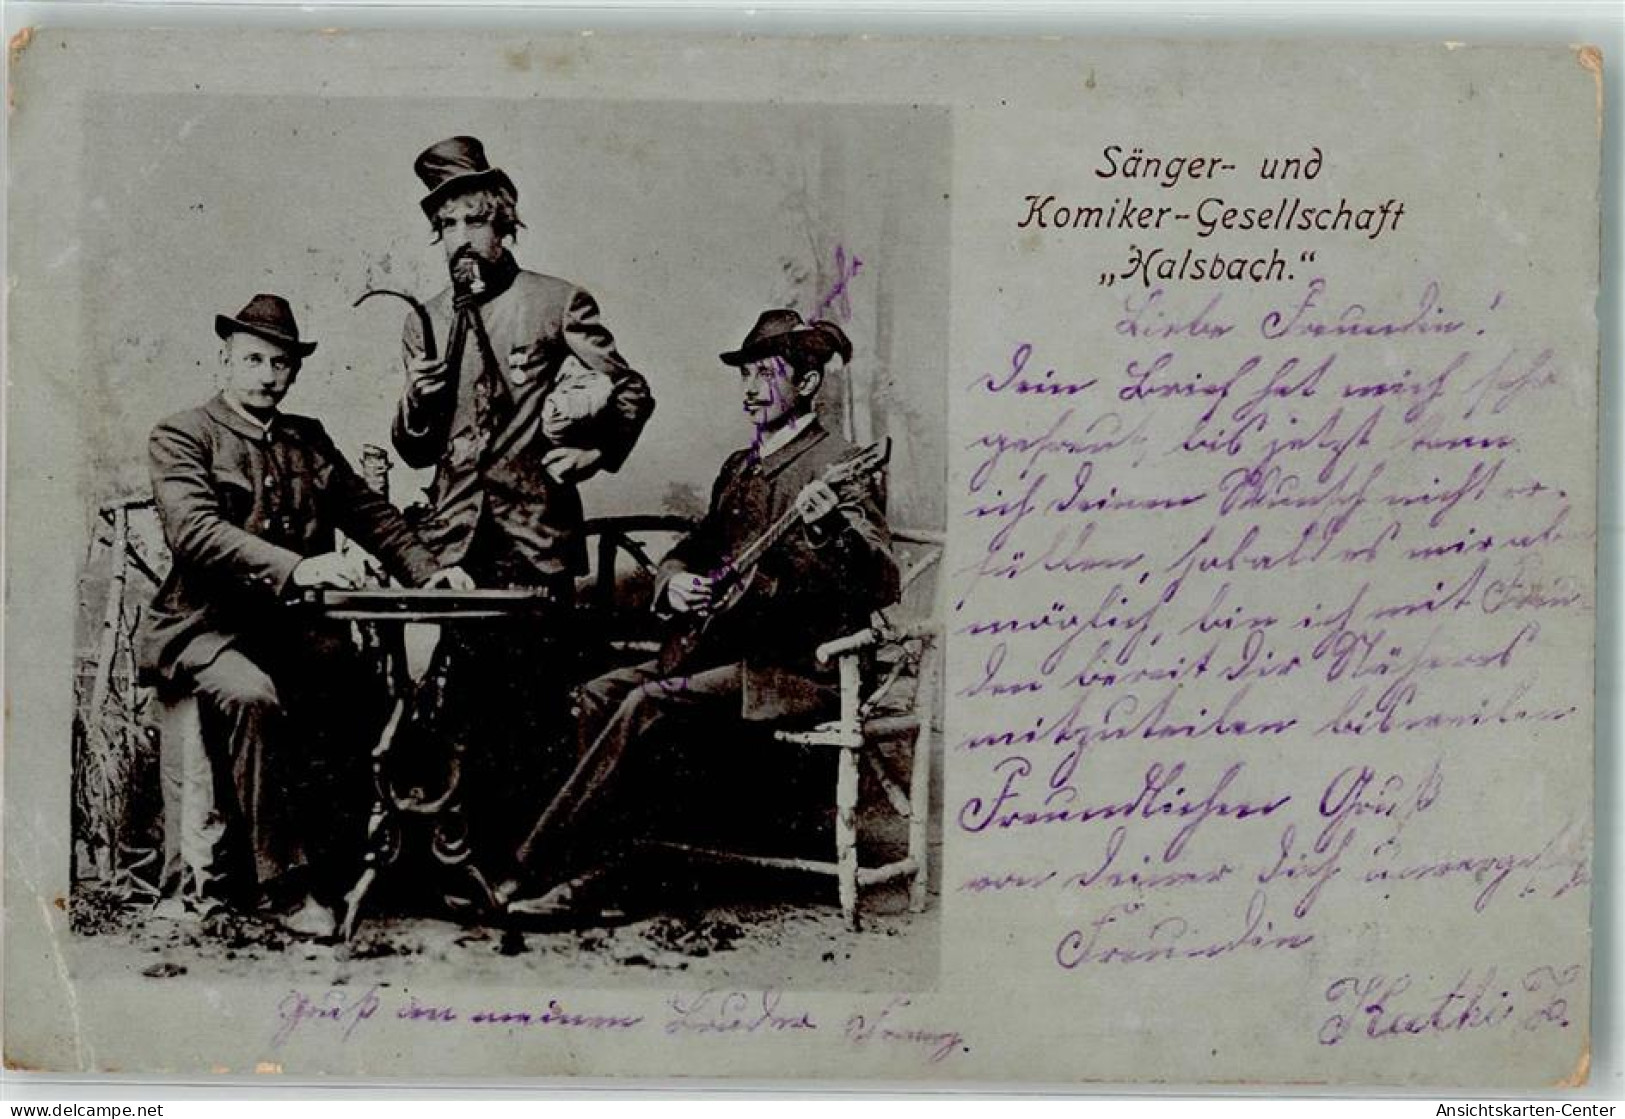 Sänger- und
Komiker-Gesellschaft
„Halsbach.“
Liebe Freundin!
Dein Brief hat mich sehr
gefreut, bis jetzt kann
ich deinen Wunsch nicht er-
füllen, sobald es mir aber
möglich, bin ich mit Freu-
den bereit dir Näheres
mitzuteilen bisweilen
Freundlichen Gruß
von deiner dich
Freundin
Kathi Z.
Gruß an meinen Bruder Franz.
www.delcampe.net
Ansichtskarten-Center